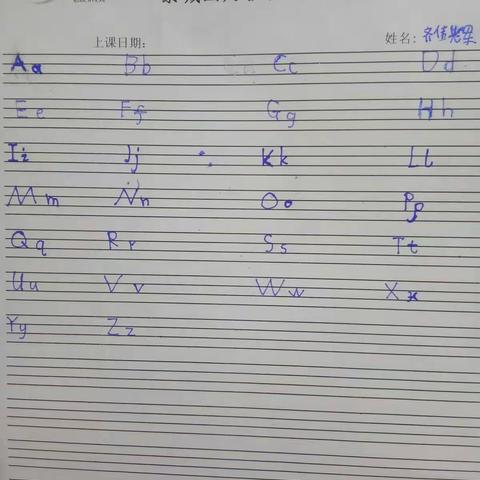 上课日期: 姓名:
Aa Bb Cc Dd
Ee Ff Gg Hh
Ii Jj Kk Ll
Mm Nn Oo Pp
Qq Rr Ss Tt
Uu Vv Ww Xx
Yy Zz